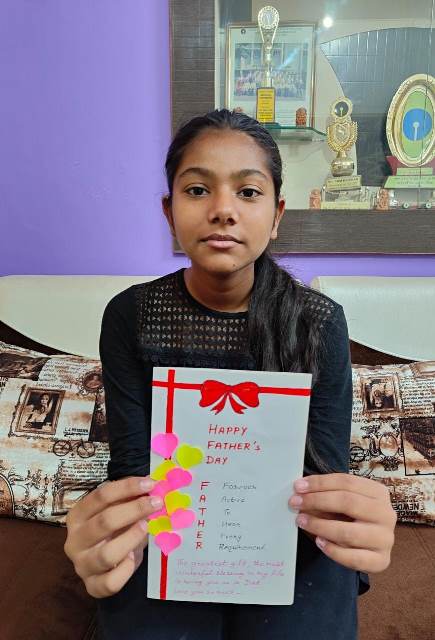 HAPPY
FATHER'S
DAY
F
A Active
T To
H
E Every
R Requirement
The greatest gift, the most
wonderful blessing in my life
is having you as a Dad
Love you so much